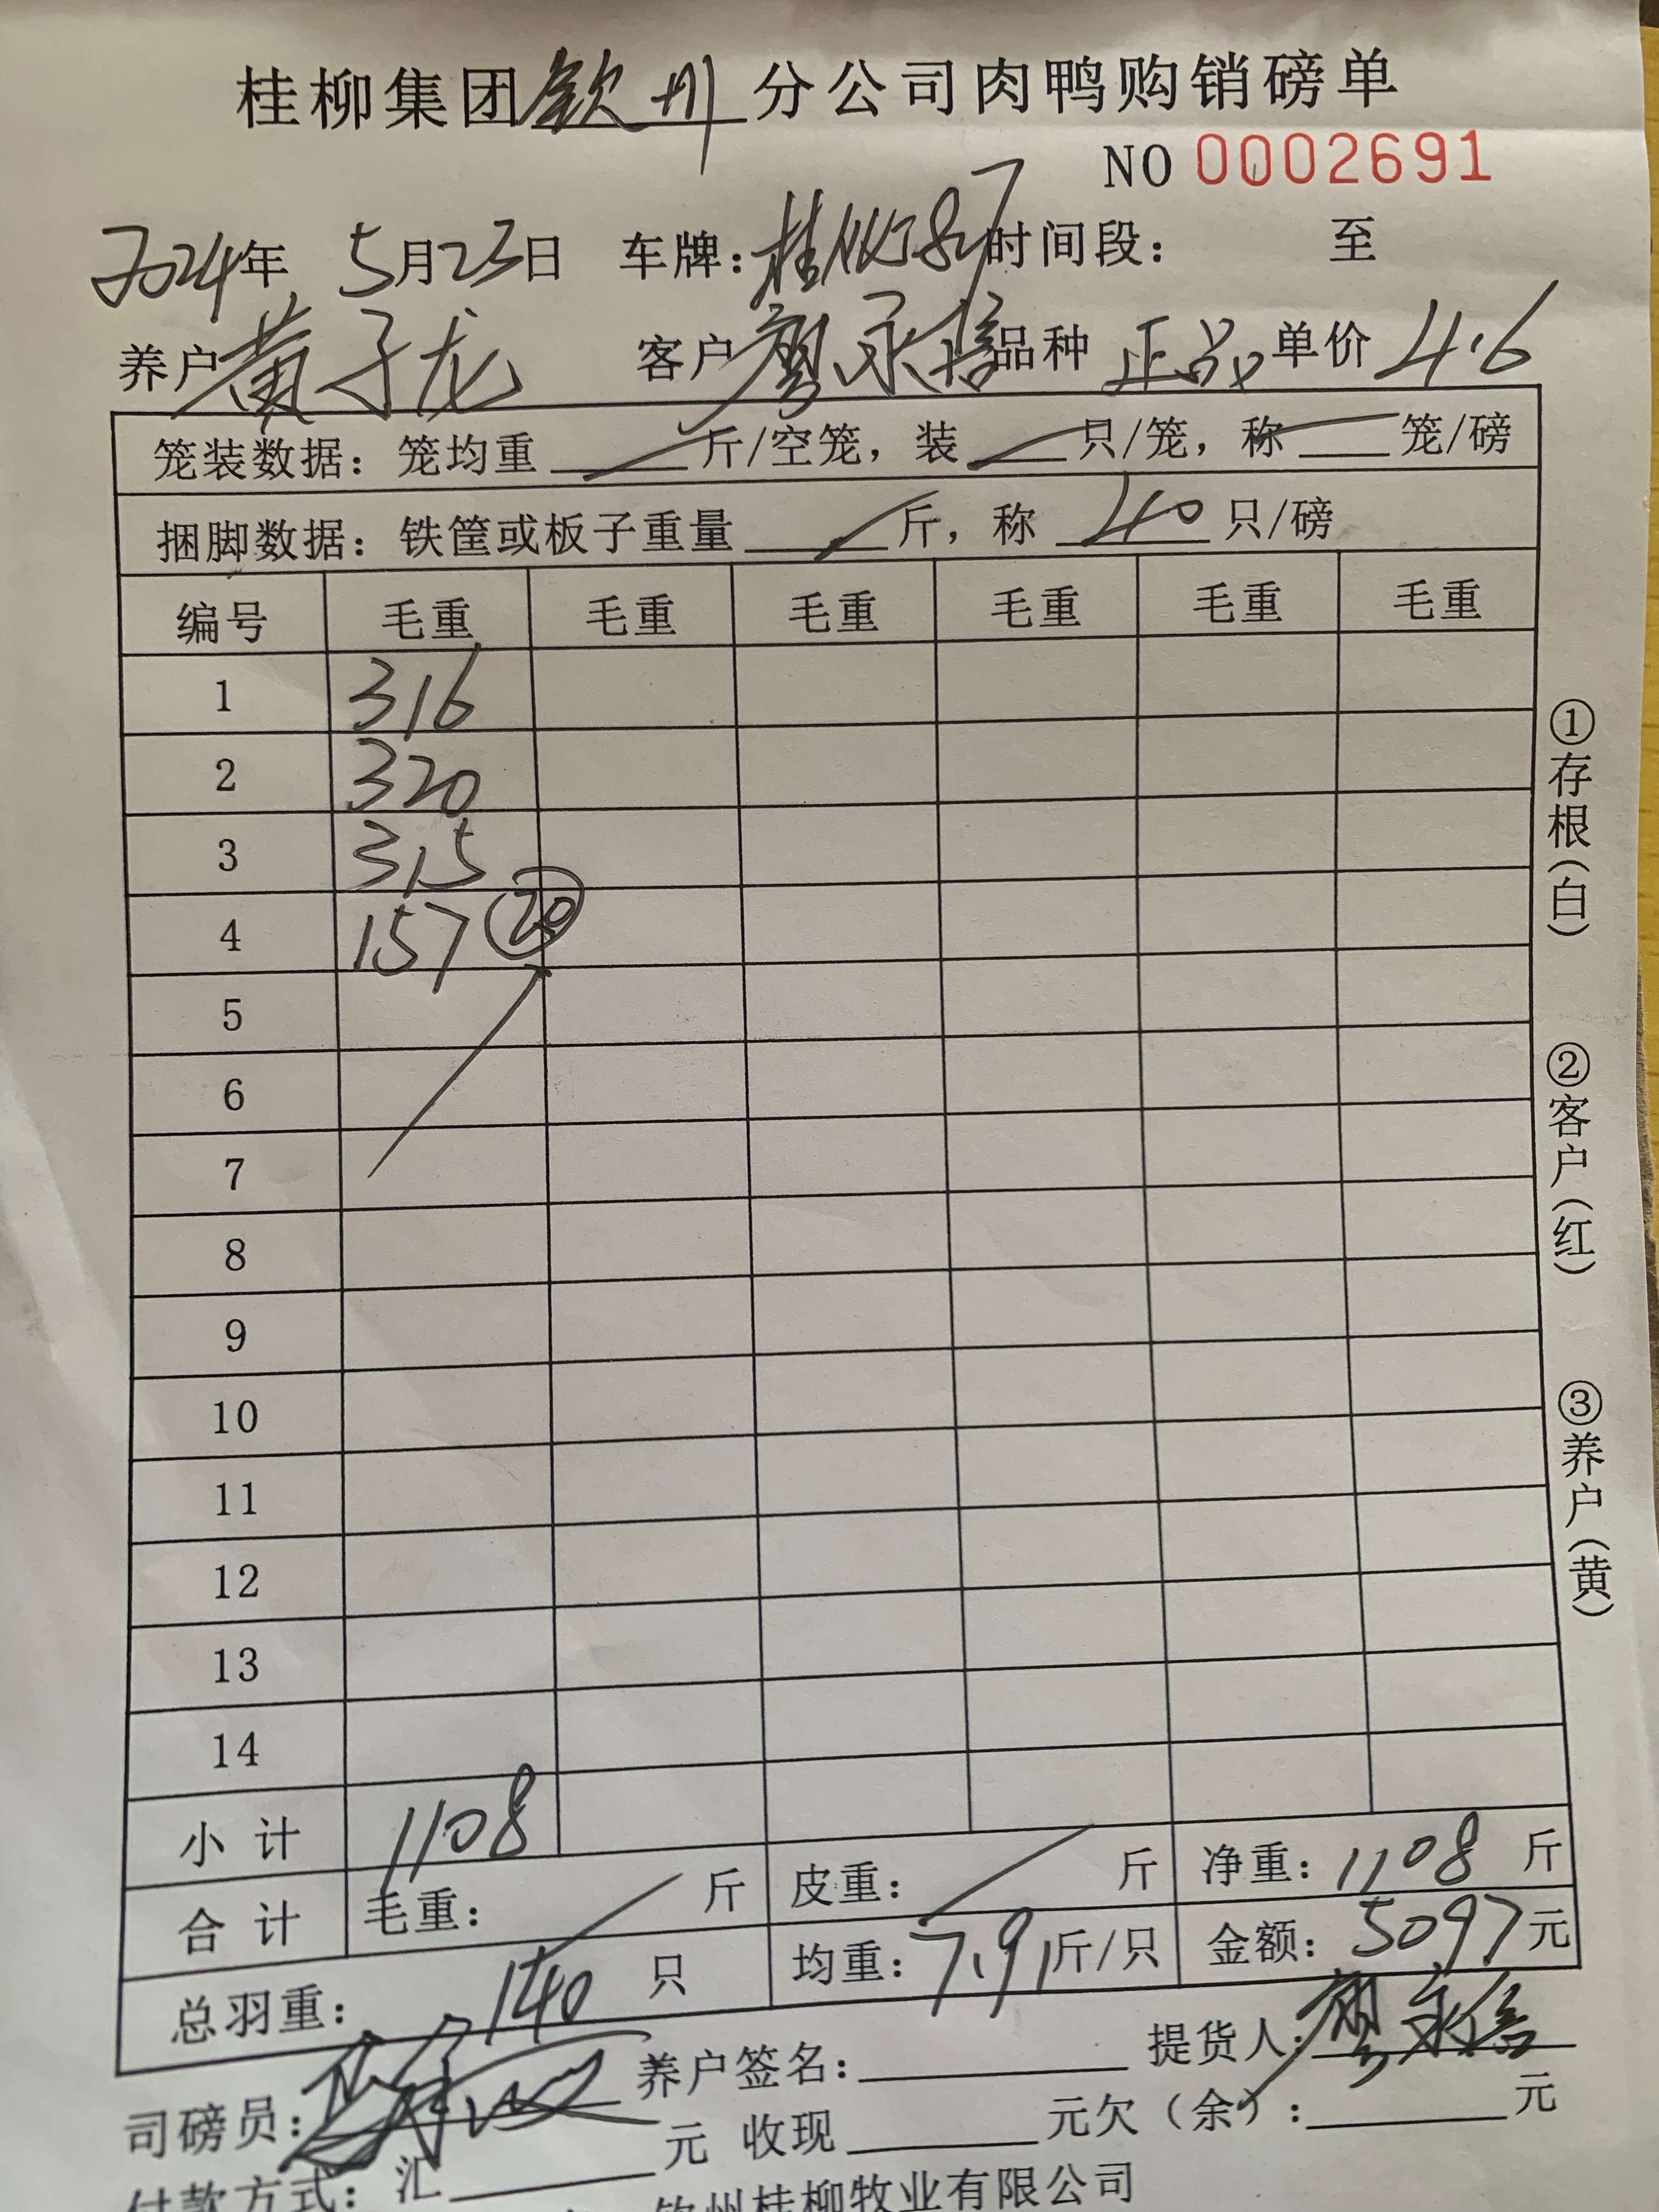 桂柳集团钦州分公司肉鸭购销磅单
NO 0002691
2024年 5月23日 车牌：桂 时间段： 至
养户黄子龙 客户廖永 品种 正品 单价 4.6
笼装数据：笼均重 斤/空笼，装 只/笼，称 笼/磅
捆脚数据：铁筐或板子重量 斤，称 40 只/磅
编号 毛重 毛重 毛重 毛重 毛重 毛重
1 316
2 320
3 315
4 157 20
5
6
7
8
9
10
11
12
13
14
小计 1108
合计 毛重： 斤 皮重： 斤 净重：1108 斤
总羽重： 140 只 均重：7.91斤/只 金额：5097元
司磅员： 养户签名： 提货人：廖永
付款方式：汇 元 收现 元欠（余）： 元
钦州桂柳牧业有限公司
①存根(白)
②客户(红)
③养户(黄)